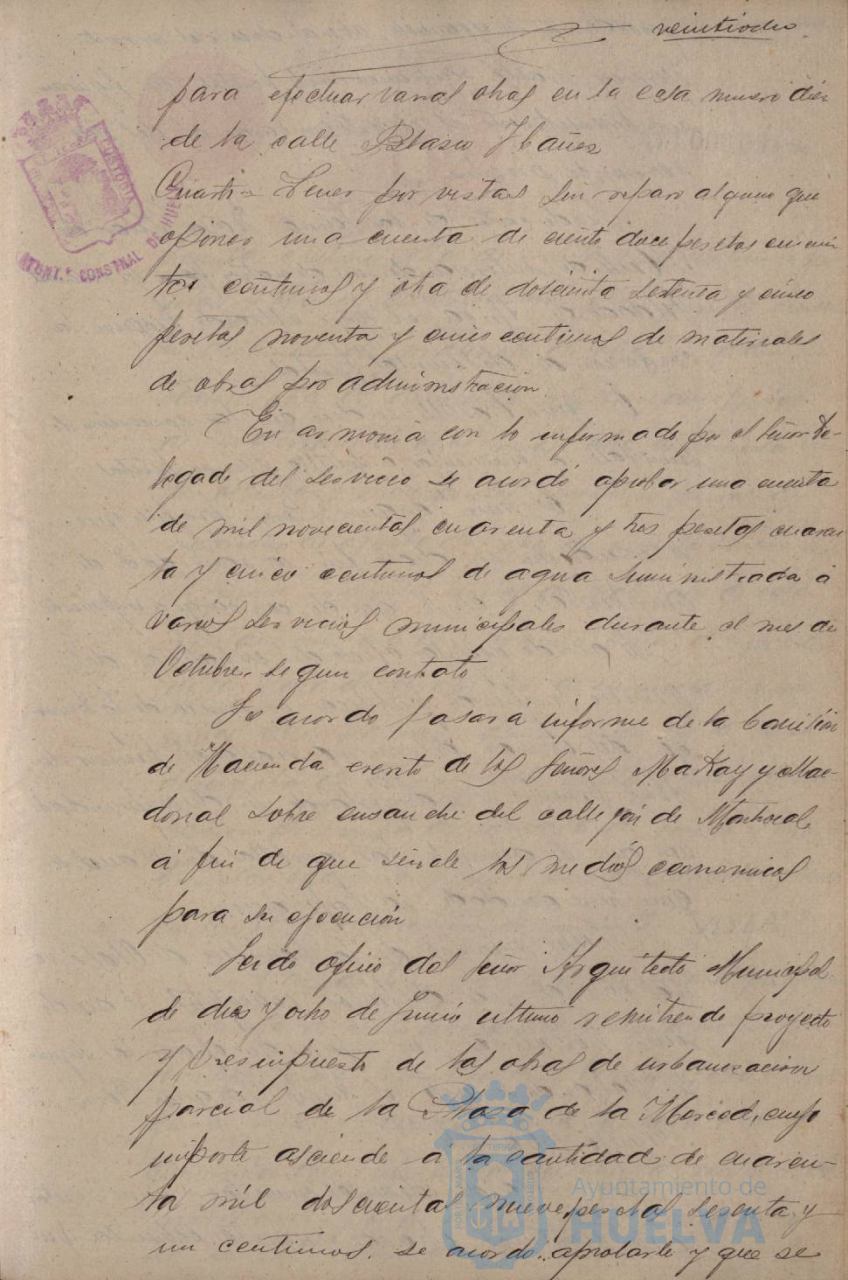 veintiocho
para efectuar varias obras en la casa numero diez
de la calle Blasco Ibañez
Cuarto = Tener por vistas sin reparo alguno que
oponer una cuenta de ciento doce pesetas
centimos y otra de doscientas setenta y cinco
pesetas noventa y cinco centimos de materiales
de obras por administracion.
En armonia con lo informado por el Señor De-
legado del servicio se acordó aprobar una cuenta
de mil novecientas cuarenta y tres pesetas cuaren
ta y cinco centimos de agua suministrada á
varios servicios municipales durante el mes de
Octubre, segun contrato
Se acordo pasar á informe de la Comisión
de Hacienda escrito de los Señores Mackay y Mac-
donal sobre ensanche del callejón de
á fin de que señale los medios economicos
para su ejecución
Leido oficio del Señor Arquitecto Municipal
de diez y ocho de Junio ultimo remitiendo proyecto
y presupuesto de las obras de urbanizacion
parcial de la Plaza de la Merced, cuyo
importe asciende a la cantidad de cuaren-
ta mil doscientas nueve pesetas sesenta y
un centimos, se acordo aprobarlo y que se
AYUNT.º CONSTNAL DE HUELVA
Ayuntamiento de
HUELVA